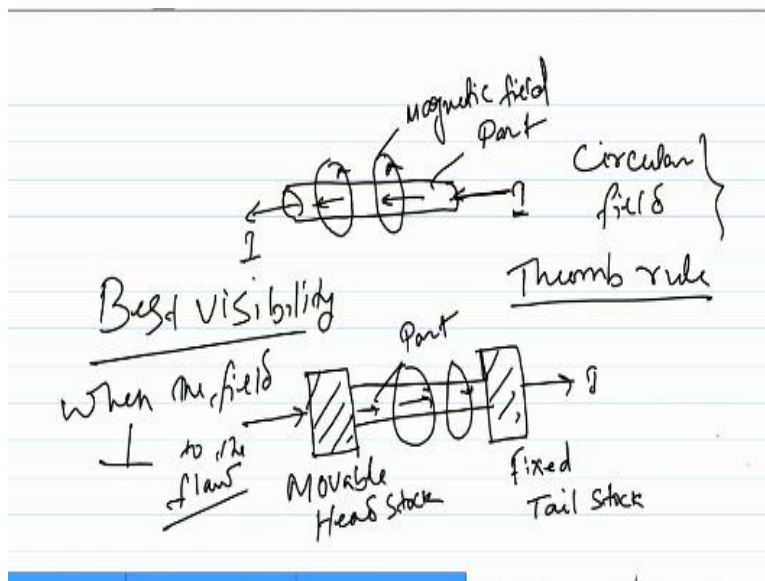 Magnetic field
Part
Circular
field
I
I
Thumb rule
Best visibility
When the field
⊥ to the
flaw
Part
I
Movable
Head Stock
Fixed
Tail Stock